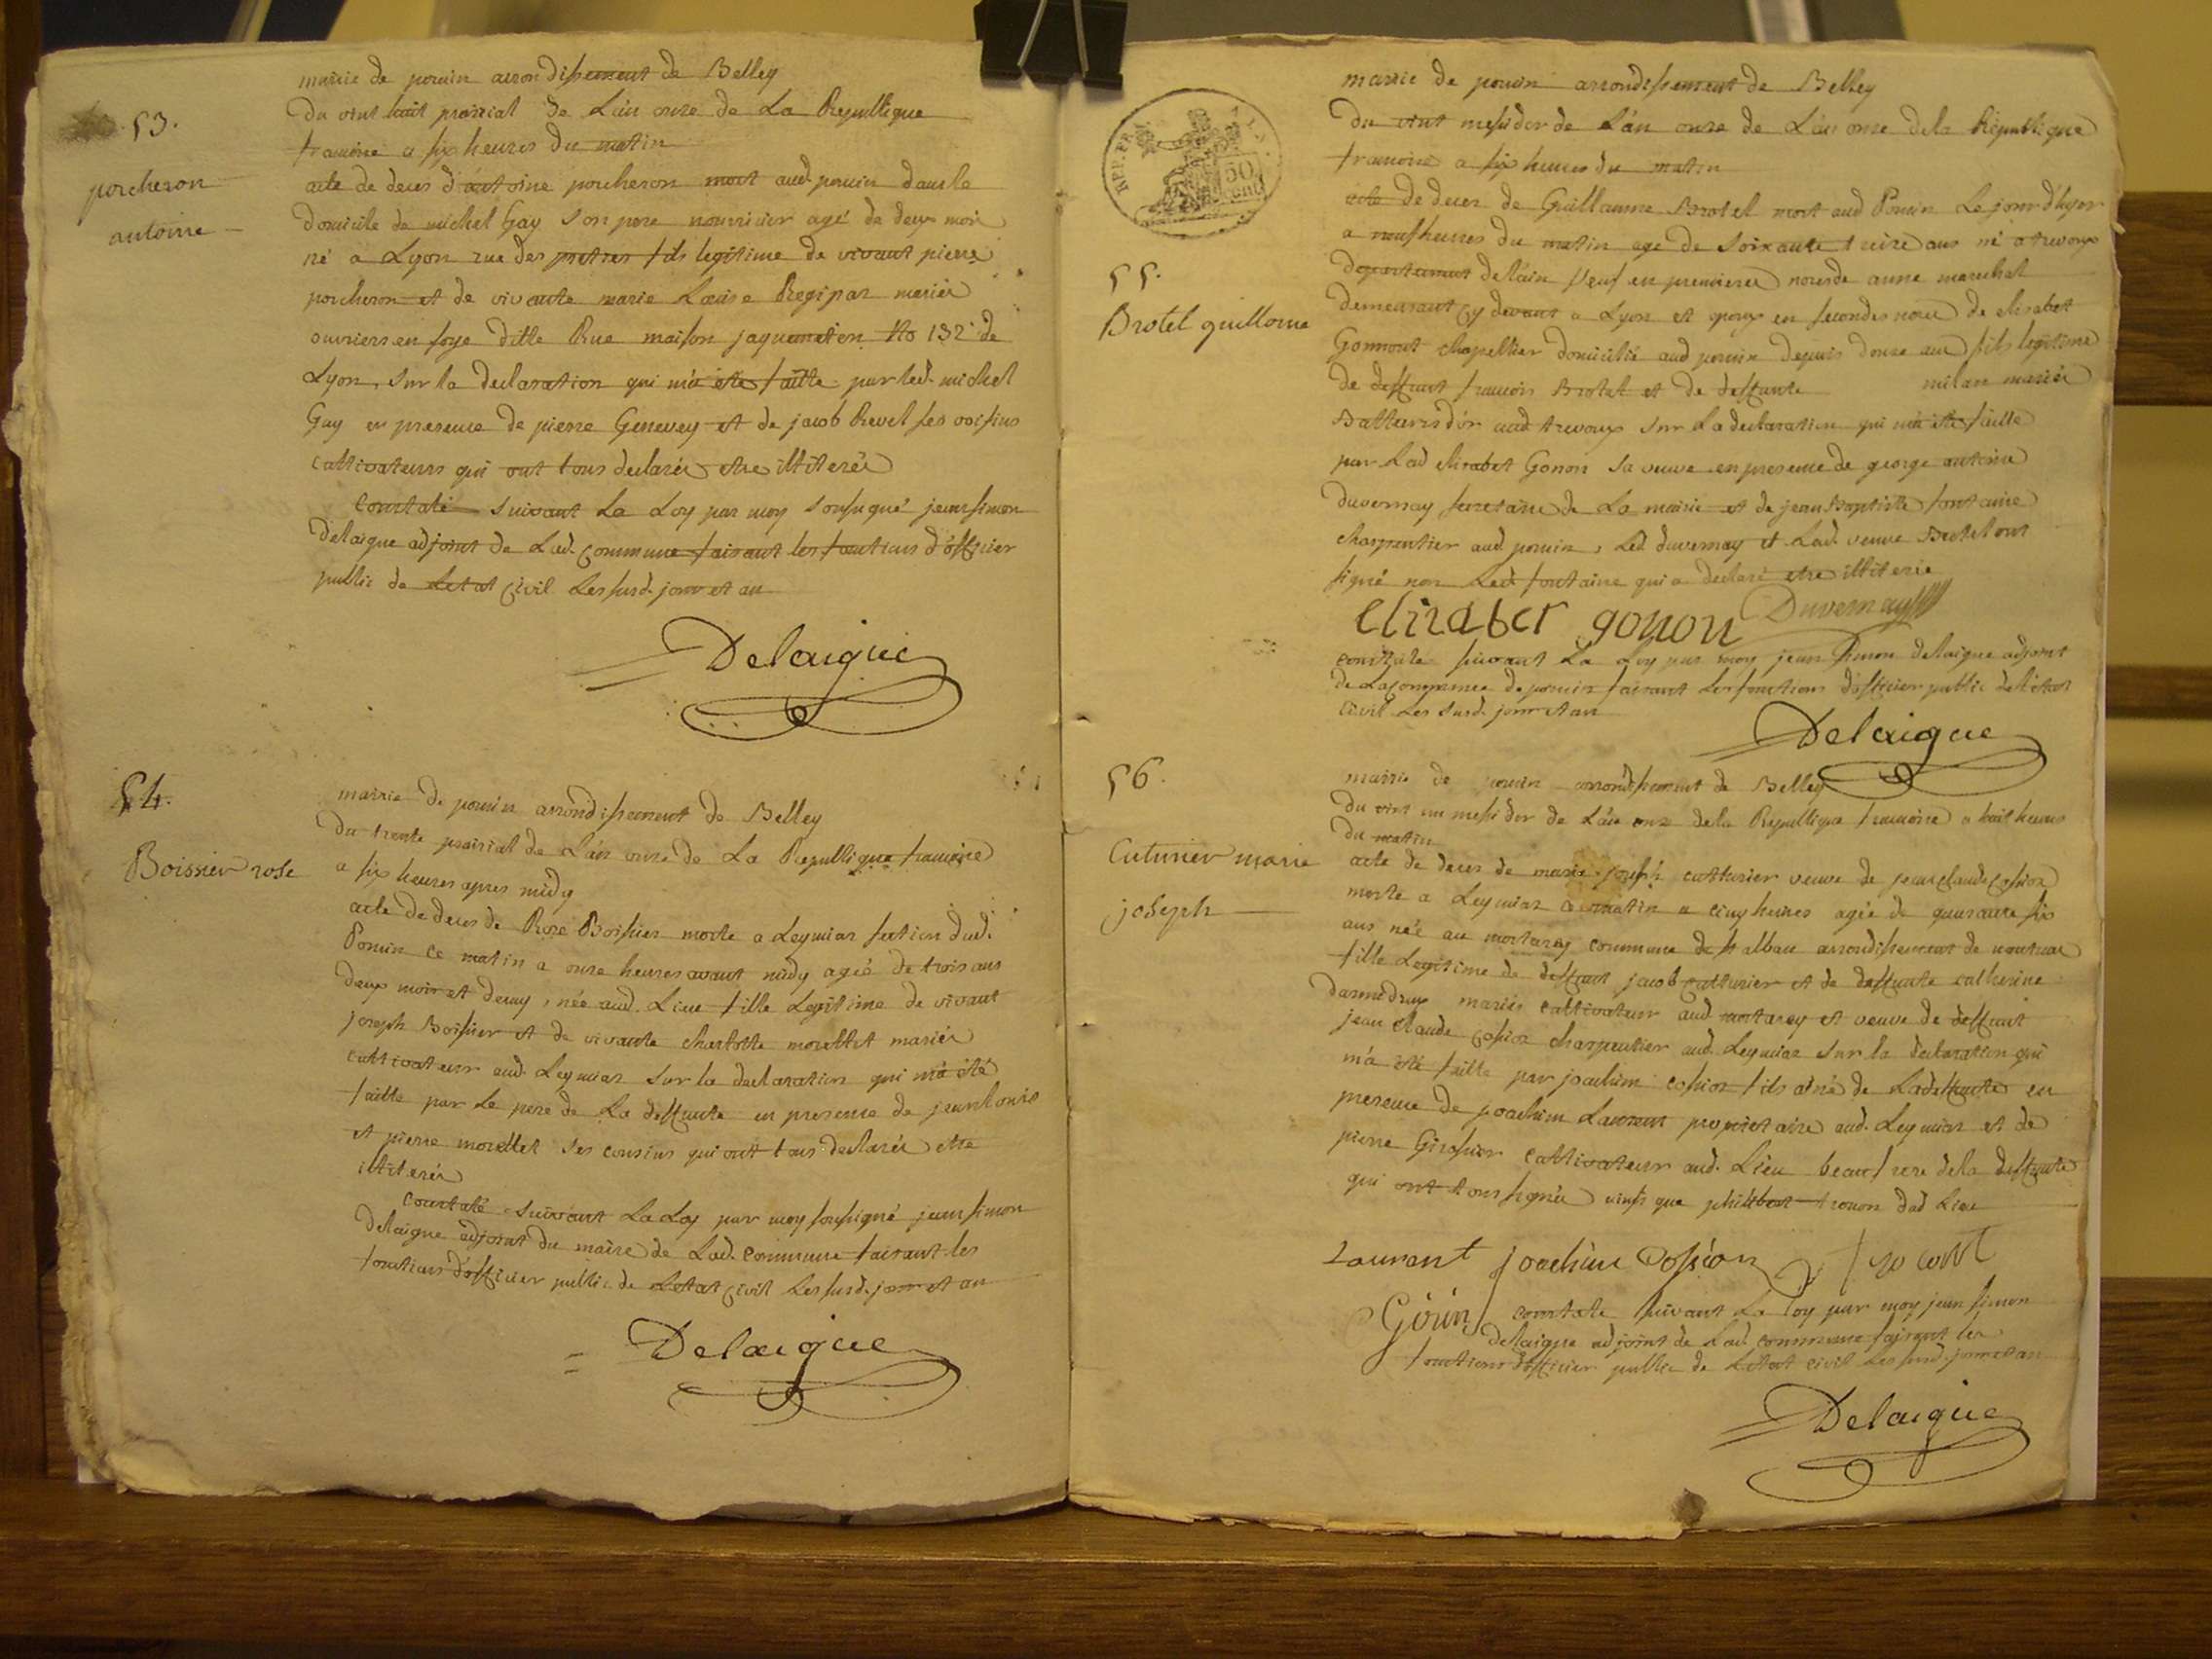 53.
porcheron
antoine
mairie de poncin arrondissement de Belley
du vint huit prairial de L'an onze de La Republique
francoise a six heures du matin
acte de deces d'antoine porcheron mort aud. poncin dans le
domicile de michel Gay son pere nourricier agé de deux mois
né a Lyon rue des pretres fils legitime de vivant pierre
porcheron et de vivante marie Louise Regipaz mariés
ouvriers en soye ditte Rue maison jaquemeton No 132 de
Lyon, sur la declaration qui m'a eté faitte par led. michel
Gay en presence de pierre Genevey et de jacob Revel ses voisins
cultivateurs qui ont tous declarés etre illiterés
Constaté suivant La Loy par moy sousigné jean simon
Delaigue adjoint de Lad. commune faisant les fonctions d'officier
public de Letat civil Les susd. jour et an
Delaigue
54.
Boissier rose
mairie de poncin arrondissement de Belley
du trente prairial de L'an onze de La Republique francoise
a six heures apres midy
acte de deces de Rose Boissier morte a Leymiaz section dud.
Poncin ce matin a onze heures avant midy agée de trois ans
deux mois et demy, née aud. Lieu fille Legitime de vivant
joseph Boissier et de vivante charlotte morellet mariés
cultivateur aud. Leymiaz sur la declaration qui m'a été
faitte par Le pere de La deffunte en presence de jean louis
et pierre morellet ses cousins qui ont tous declarés etre
illiterés
Constaté suivant La Loy par moy sousigné jean simon
Delaigue adjoint du maire de Lad. commune faisant les
fonctions d'officier public de Letat civil Les susd. jour et an
Delaigue
REP. FRA.
50
cent
55.
Brotel guillome
mairie de poncin arrondissement de Belley
du vint messidor de L'an onze de L'an onze de la Republique
francoise a six heures du matin
acte de deces de Guillaume Brotel mort aud Poncin Le jour d'hyer
a neuf heures du matin age de soixante treize ans né a trevoux
departement de l'ain veuf en premieres noces de anne marechal
demeurant cy devant a Lyon et epoux en secondes noces de elisabet
Gonnont chapellier domicilié aud poncin depuis douze ans fils legitime
de deffunt francois Brotel et de deffunte milan mariés
Batteurs d'or aud trevoux sur La declaration qui m'a eté faitte
par Lad elisabet Gonon sa veuve en presence de george antoine
duvernay secretaire de La mairie et de jean Baptiste fontaine
charpentier aud poncin, Led duvernay et Lad. veuve Brotel ont
signé non Led fontaine qui a declaré etre illiteré
Elizabet gonon Duvernay
constaté suivant La Loy par moy jean simon delaigue adjoint
de La commune de poncin faisant les fonctions d'officier public de L'etat
civil Les susd. jour et an
Delaigue
56.
Cuturier marie
joseph
mairie de poncin arrondissement de Belley
du vint un messidor de L'an onz de la Republique francoise a huit heures
du matin
acte de deces de marie joseph cutturier veuve de jean claude cossioz
morte a Leymiaz ce matin a cinq heures agée de quarante six
ans née au mortarey commune de st alban arrondissement de nantua
fille Legitime de deffunt jacob cutturier et de deffunte catherine
mariés cultivateur aud. mortarey et veuve de deffunt
jean claude cossioz charpentier aud. Leymiaz sur la declaration qui
m'a eté faitte par joachim cossioz fils ainé de Lad deffunte en
presence de joachim Laurent propriétaire aud. Leymiaz et de
pierre cultivateur aud. Lieu beaufrere de la deffunte
qui ont tous signés ainsi que philibert dud Lieu
Laurent joachim Cossioz
Gouin constaté suivant La Loy par moy jean simon
delaigue adjoint de Lad. commune faisant les
fonctions d'officier public de Letat civil Les susd. jour et an
Delaigue